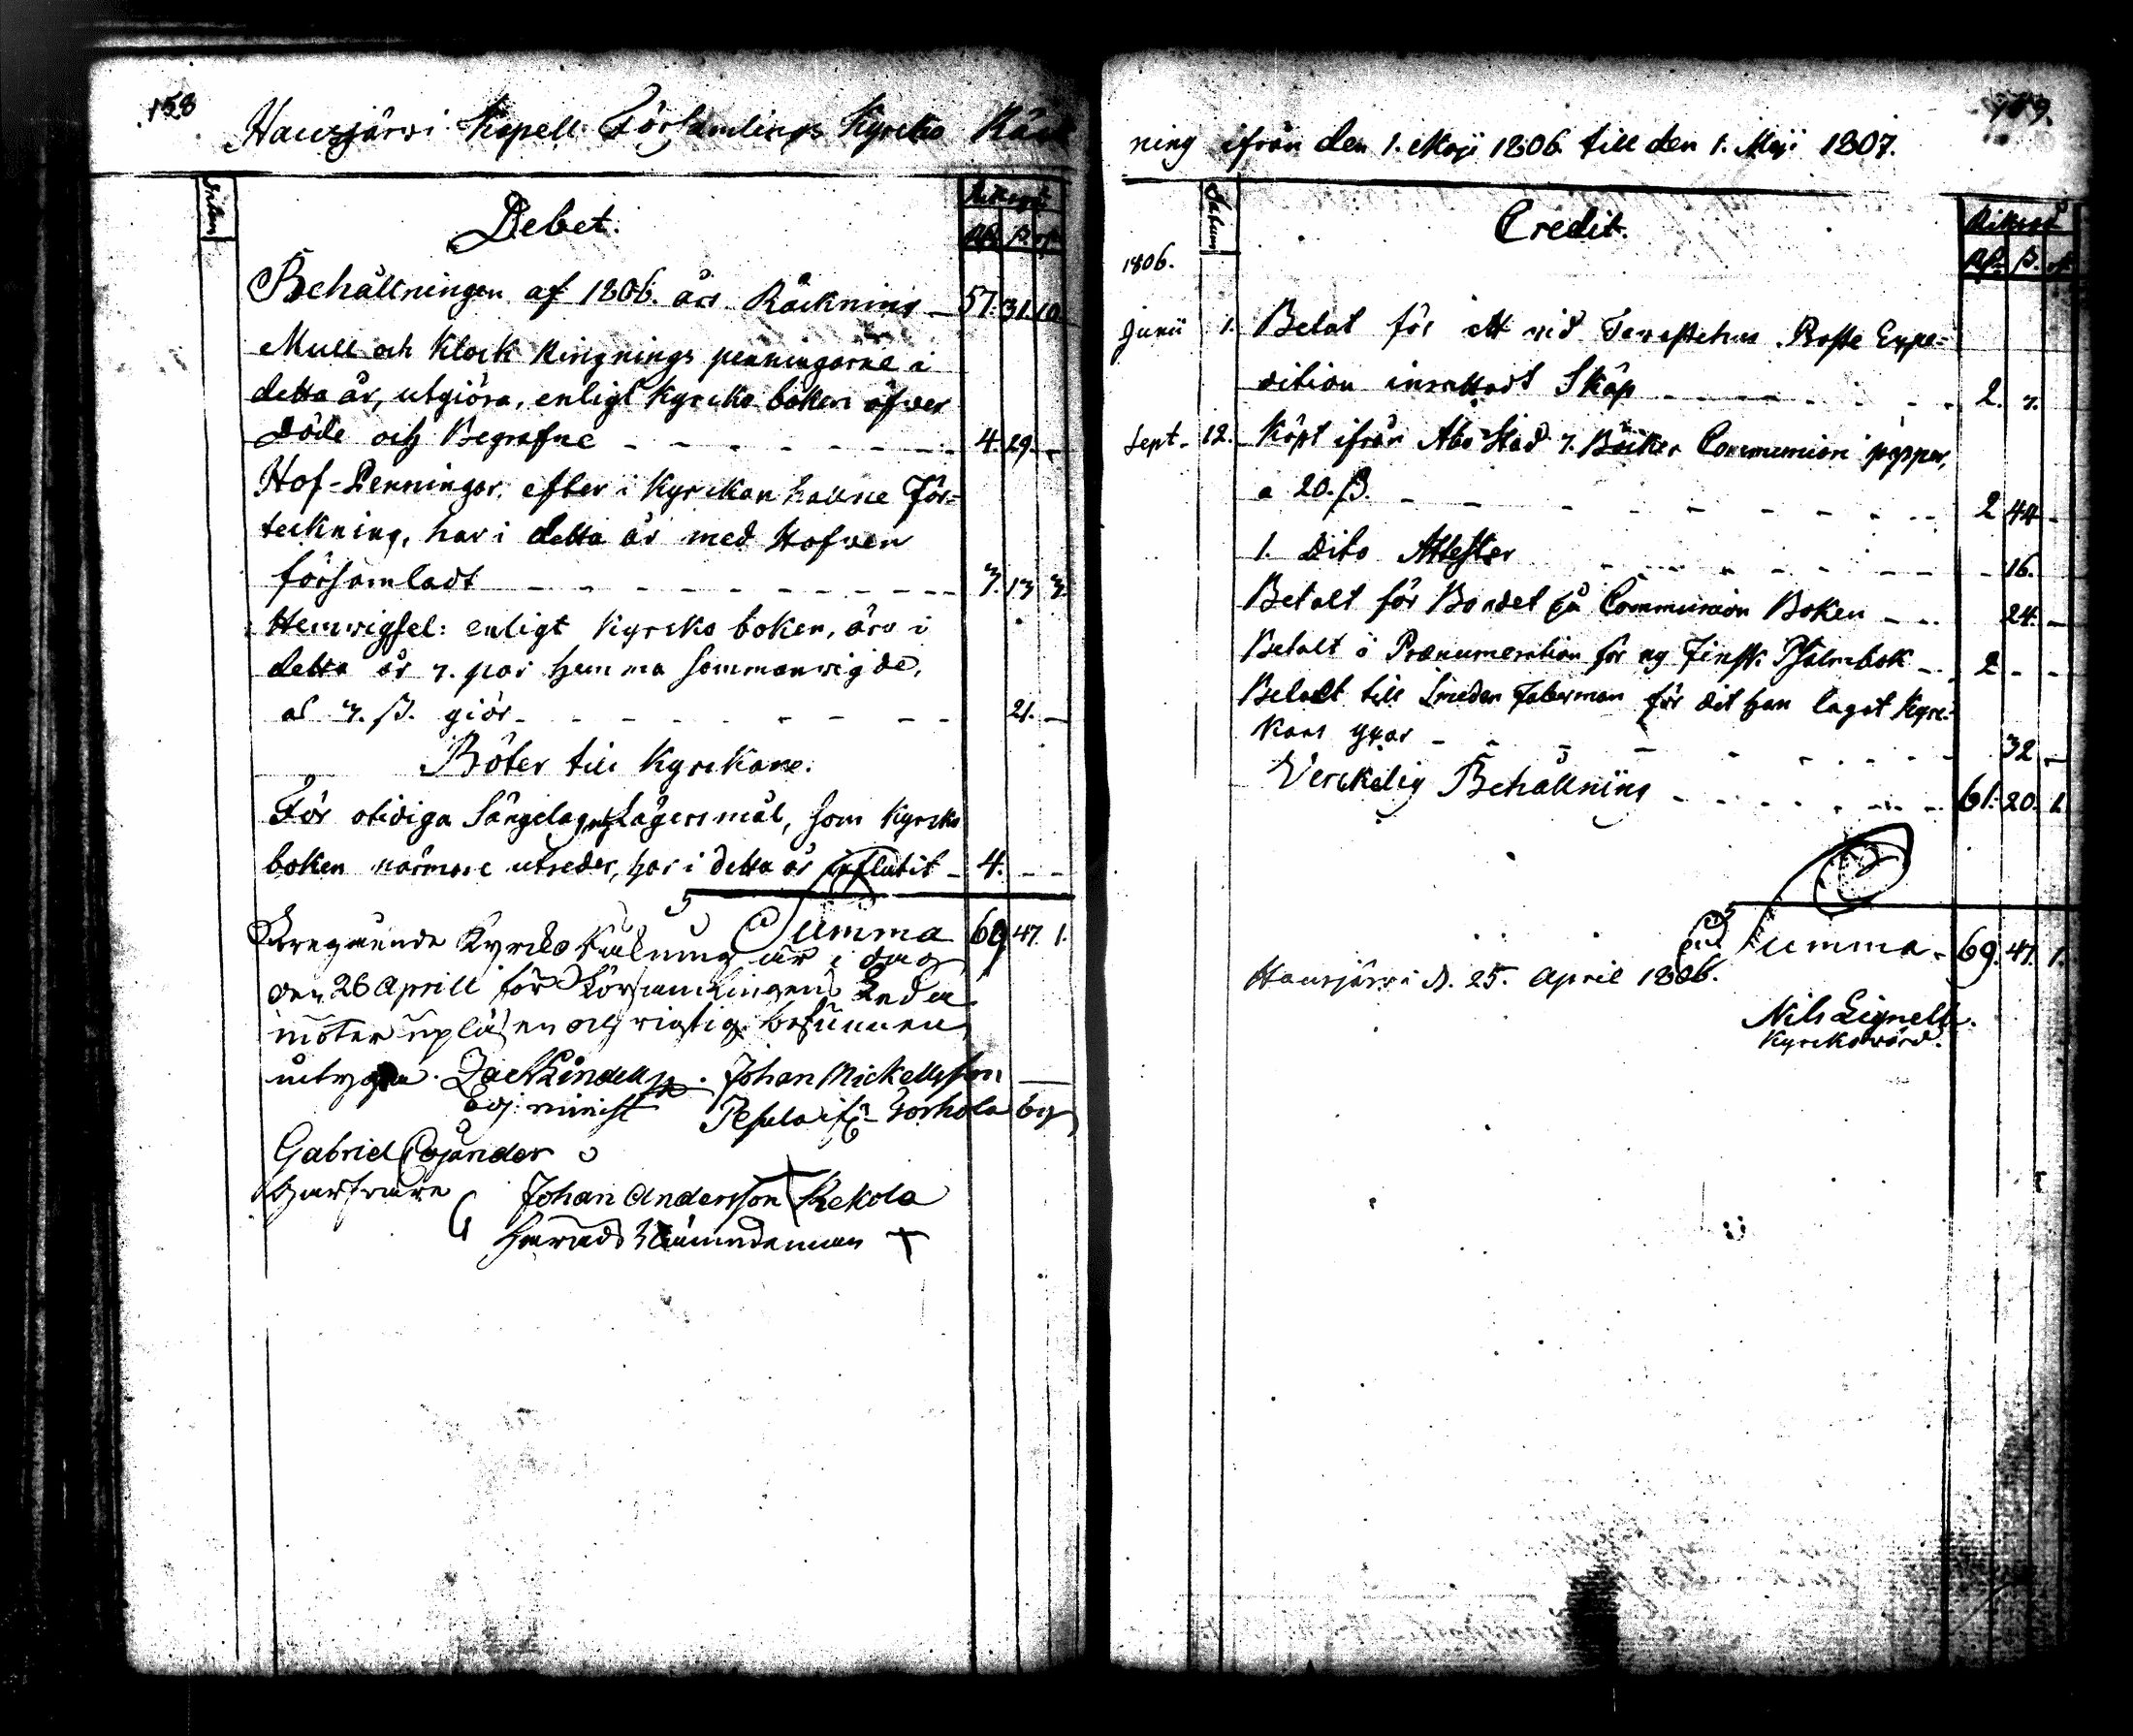 158
Hausjärvi Kapell Församlings Kyrcko Räck
Datum
Debet.
Riksgd.
Rd. ß. rst.
Behållningen af 1806. års Räckning 57. 31. 10
Mull och Klock Ringnings penningarne i
detta år, utgiöra, enligt Kyrcko boken öfver
döde och Begrafne 4. 29. -
Hof-Penningar, efter i Kyrckan hallne För-
teckning, har i detta år med Hofven
församladt 7. 13 3
Hemvigsel: enligt Kyrcko boken, äro i
detta år 7. par hemma sammanvigde,
al 3. ß. giör 21. -
Böter till Kyrckane.
För otidiga Sängelag och Lägersmål, som Kyrcko
boken närmare utreder, har i detta år influtit 4. - -
Summa 69 47. 1.
Föregående Kyrcko Räkning är i dag
den 26 Aprill för Församlingens Leda
möter upläsen och rigtig befunnen
betyga. Zach Lindell Johan Mickellsson
adj: minist Pesula if. Torhola by
Gabriel Cajander
Johan Andersson Rekola
Härads Nämndeman
159.
ning ifrån den 1. Maji 1806 till den 1. Maji 1807.
Datum
Credit.
Riksgd
Rd. ß. rst.
1806.
Junii 1. Betal för ett vid Tavastehus Poste Expe-
dition inrättadt Skåp 2. 7.
Sept. 12. Köpt ifrån Åbo Stad 7. Böcker Communion papper,
a 20. ß. 2 44 -
1. Dito Attester - 16.
Betalt för Bandet på Communion Boken 24. -
Betalt i Prænumeration för ny Finsk Psalmbok 2 - -
Betalt till Smeden Faberman för det han lagat Kyrc-
kans 32 -
Verckelig Behållning 61. 20. 1.
Summa 69. 47. 1.
Hausjärvi d. 25. April 1806.
Nils Lignell.
Kyrckovärd.